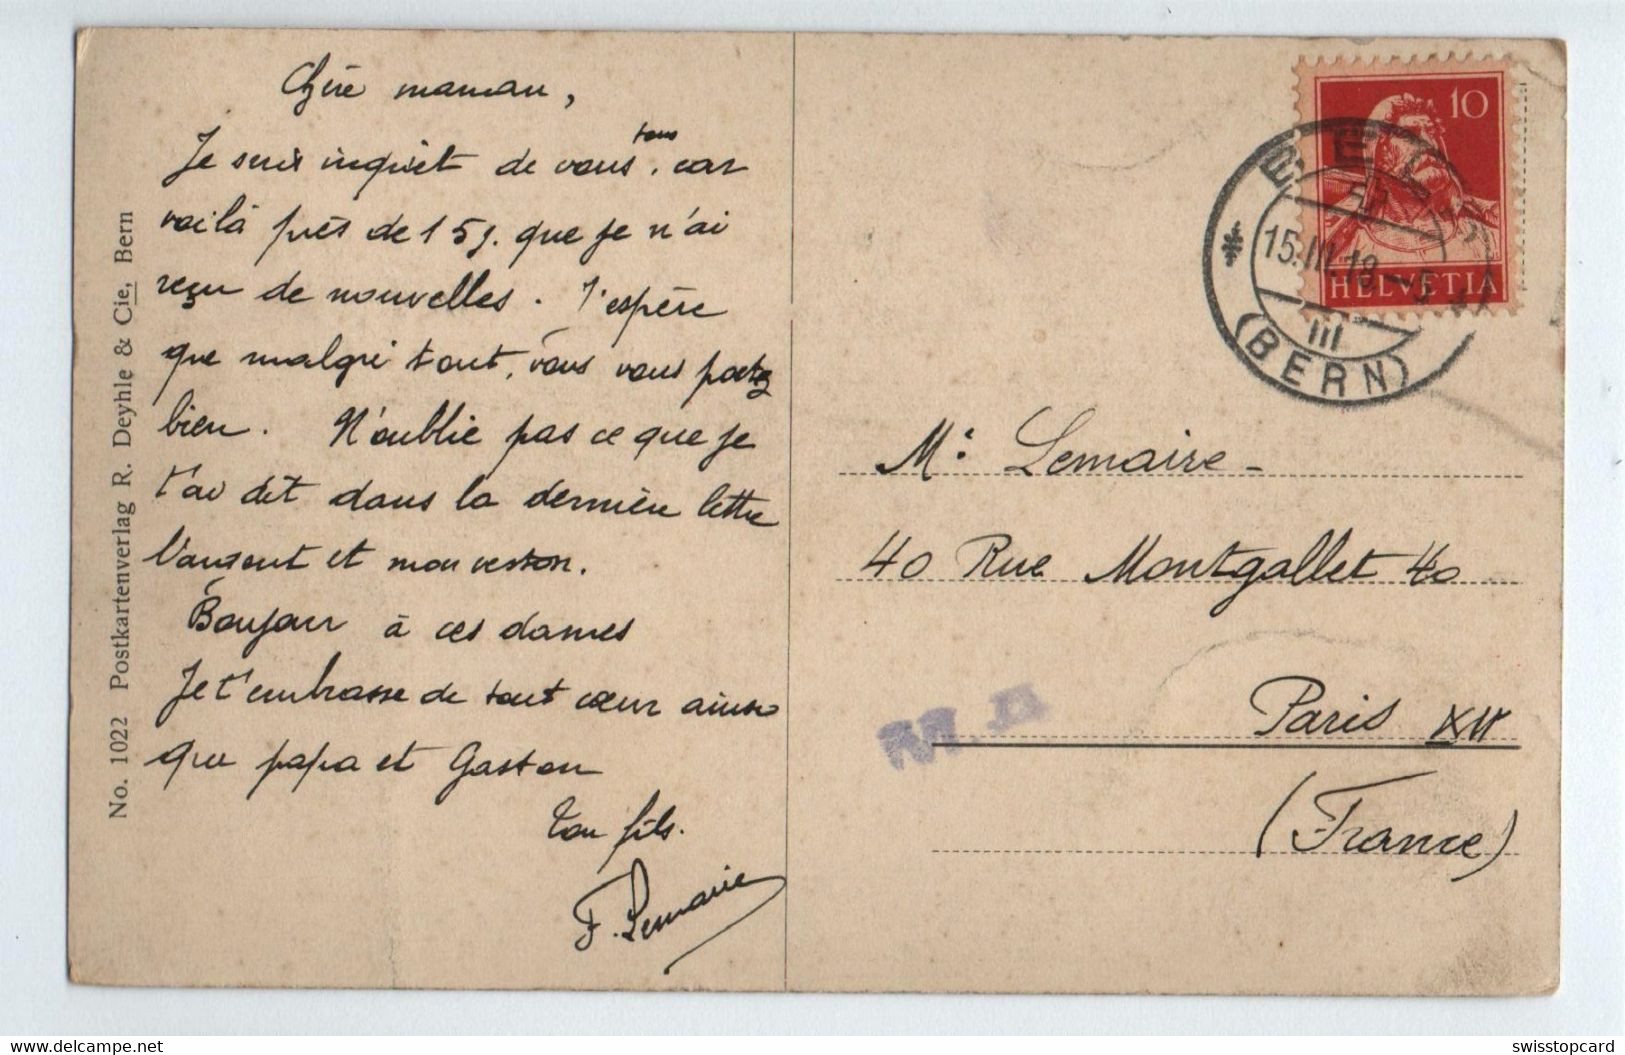 Chère maman,
Je suis inquiet de vous tous, car
voilà près de 15j. que je n'ai
reçu de nouvelles. J'espère
que malgré tout, vous vous portez
bien. N'oublie pas ce que je
t'ai dit dans la dernière lettre
l'argent et mon veston.
Bonjour à ces dames
Je t'embrasse de tout cœur ainsi
que papa et Gaston
Ton fils.
F. Lemaire
No. 1022 Postkartenverlag R. Deyhle & Cie, Bern
10
HELVETIA
15.III.18
III
(BERN)
Mr: Lemaire-
40 Rue Montgallet 40
Paris XII
(France)
www.delcampe.net
swisstopcard